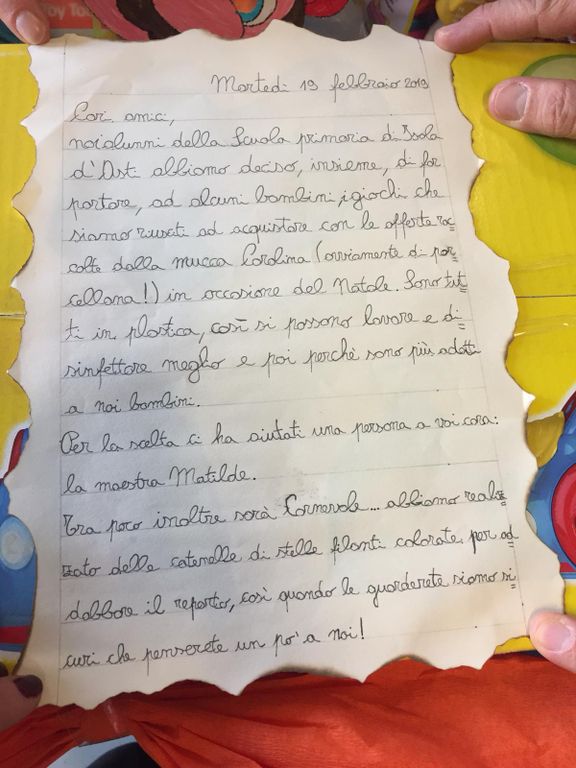 Toy To
Martedì 19 febbraio 2019
Cari amici,
noi alunni della Scuola primaria di Isola
d'Asti abbiamo deciso, insieme, di far
portare, ad alcuni bambini, i giochi che
siamo riusciti ad acquistare con le offerte rac
colte dalla mucca Carolina (ovviamente di por
cellana!) in occasione del Natale. Sono tut
ti in plastica, così si possono lavare e di
sinfettare meglio e poi perchè sono più adatti
a noi bambini.
Per la scelta ci ha aiutati una persona a voi cara:
la maestra Matilde.
Tra poco inoltre sarà Carnevale... abbiamo realiz
zato delle catenelle di stelle filanti colorate, per ad
dobbare il reparto, così quando le guarderete siamo si
curi che penserete un po' a noi!